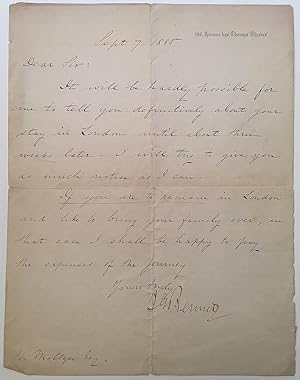 Avenue des Champs Elysées
Sept 7. 1885
Dear Sir:
It will be hardly possible for
me to tell you definitively about your
stay in London until about three
weeks later. I will try to give you
as much notice as I can.
If you are to remain in London
and like to bring your family over, in
that case I shall be happy to pay
the expenses of the journey.
Yours truly
Bennett
Meltzer Esq.